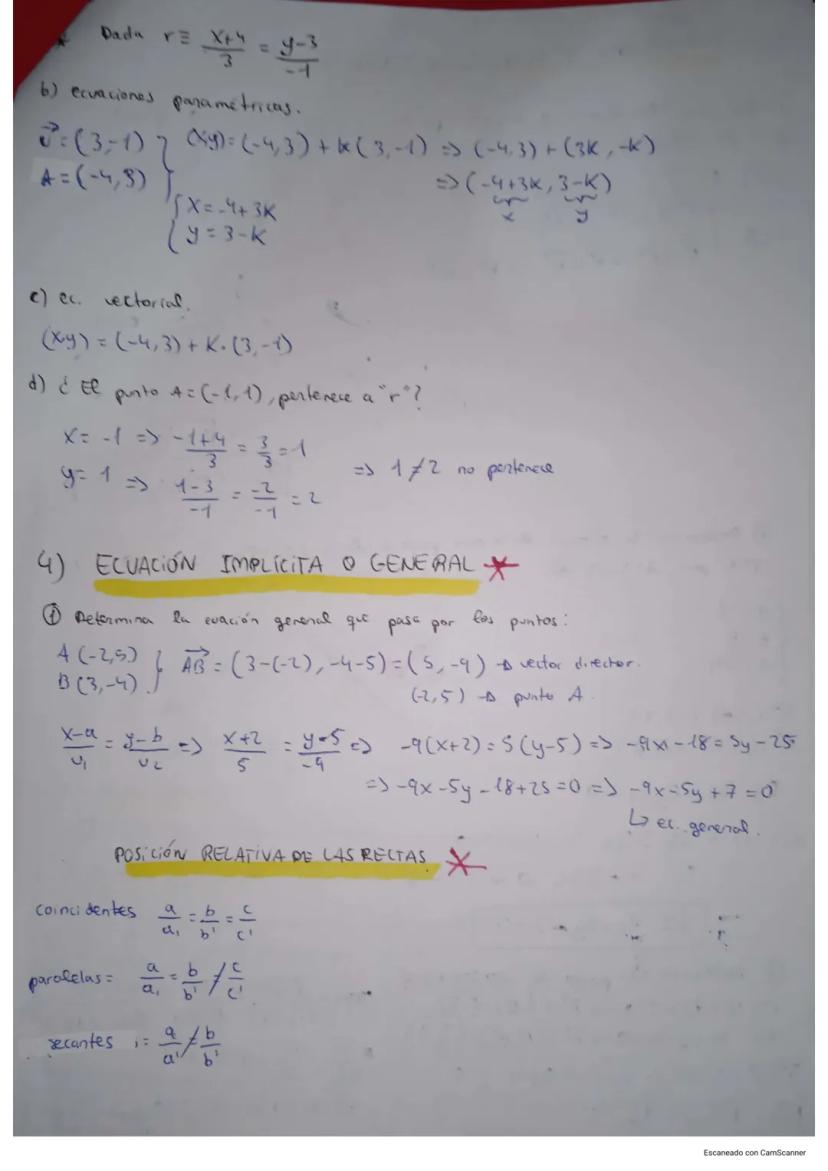 * Dada r ≡ x+4/3 = y-3/-1
b) ecuaciones paramétricas.
v⃗ = (3,-1) } (x,y) = (-4,3) + k(3,-1) => (-4,3) + (3k, -k)
A = (-4,3) => (-4+3k, 3-k)
x y
{ x = -4+3k
y = 3-k
c) ec. vectorial.
(x,y) = (-4,3) + k·(3,-1)
d) ¿El punto A = (-1,1), pertenece a "r"?
x = -1 => -1+4/3 = 3/3 = 1
=> 1 ≠ 2 no pertenece
y = 1 => 1-3/-1 = -2/-1 = 2
4) ECUACIÓN IMPLÍCITA O GENERAL *
① Determina la evación general que pasa por los puntos:
A(-2,5) } AB⃗ = (3-(-2), -4-5) = (5,-9) → vector director.
B(3,-4) (-2,5) → punto A.
x-a/v₁ = y-b/v₂ => x+2/5 = y-5/-9 => -9(x+2) = 5(y-5) => -9x-18 = 5y-25
=> -9x-5y-18+25=0 => -9x-5y+7=0
↳ ec. general.
POSICIÓN RELATIVA DE LAS RECTAS *
coincidentes a/a₁ = b/b' = c/c'
paralelas = a/a₁ = b/b' ≠ c/c'
secantes = a/a' ≠ b/b'
Escaneado con CamScanner